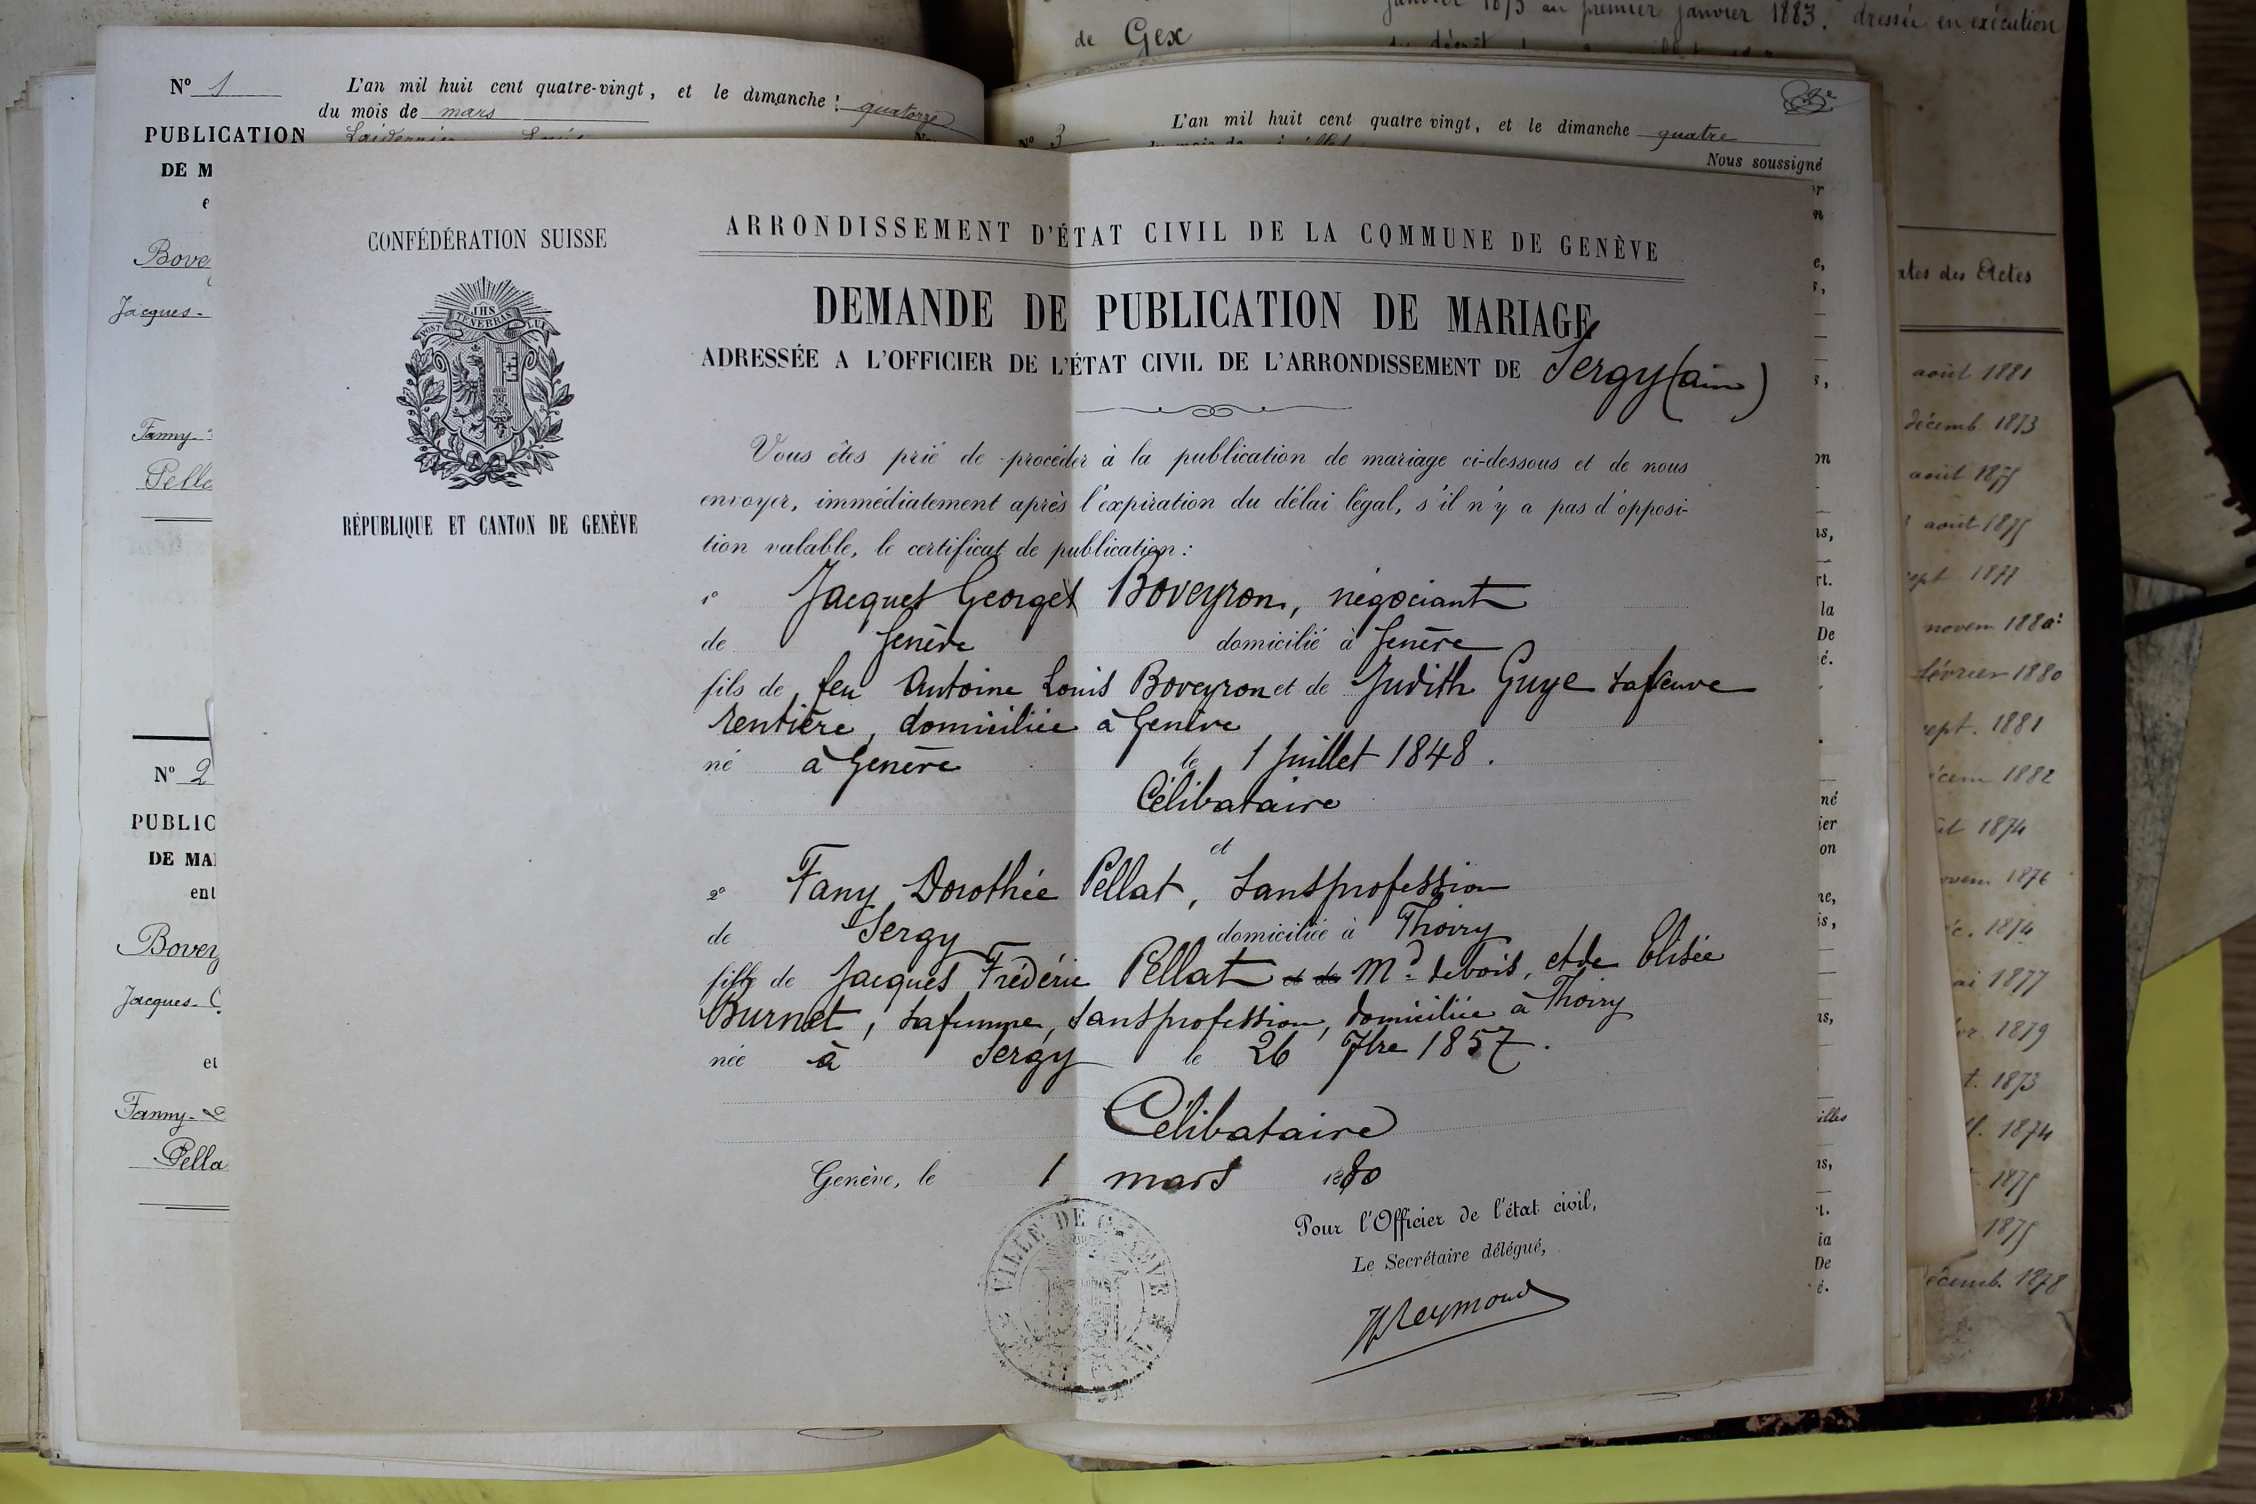 de Gex
janvier 1873 au premier janvier 1883. dressée en exécution
Nº 1
L'an mil huit cent quatre-vingt, et le dimanche quatorze
du mois de mars
PUBLICATION
DE M
e
Bove
Jacques-
Fanny-
Pella
Nº 2
PUBLIC
DE MA
ent
Bovey
Jacques-
et
Fanny-
Pella
Nº 3
L'an mil huit cent quatre vingt, et le dimanche quatre
Nous soussigné
CONFÉDÉRATION SUISSE
POST TENEBRAS LUX
JHS
RÉPUBLIQUE ET CANTON DE GENÈVE
ARRONDISSEMENT D'ÉTAT CIVIL DE LA COMMUNE DE GENÈVE
DEMANDE DE PUBLICATION DE MARIAGE
ADRESSÉE A L'OFFICIER DE L'ÉTAT CIVIL DE L'ARRONDISSEMENT DE Sergy (ain)
Vous êtes prié de procéder à la publication de mariage ci-dessous et de nous
envoyer, immédiatement après l'expiration du délai légal, s'il n'y a pas d'opposi-
tion valable, le certificat de publication:
1º Jacques Georges Boveyron, négociant
de Genève domicilié à Genève
fils de feu Antoine Louis Boveyron et de Judith Guye sa veuve
rentière, domiciliée à Genève
né à Genève le 1 Juillet 1848.
Célibataire
et
2º Fany Dorothée Pellat, sans profession
de Sergy domiciliée à Thoiry
fille de Jacques Frédéric Pellat et de Md de bois, et de Elisée
Burnet, sa femme, sans profession, domiciliée à Thoiry
née à Sergy le 26 7bre 1857.
Célibataire
Genève, le 1 mars 1880
Pour l'Officier de l'état civil,
Le Secrétaire délégué,
Reymond
VILLE DE GENÈVE
ates des Actes
août 1881
décemb 1873
août 1875
août 1875
sept 1878
novem 1880
février 1880
sept. 1881
écem 1882
1874
ovem 1876
1874
ai 1877
1879
1873
1874
1875
1875
écemb. 1878